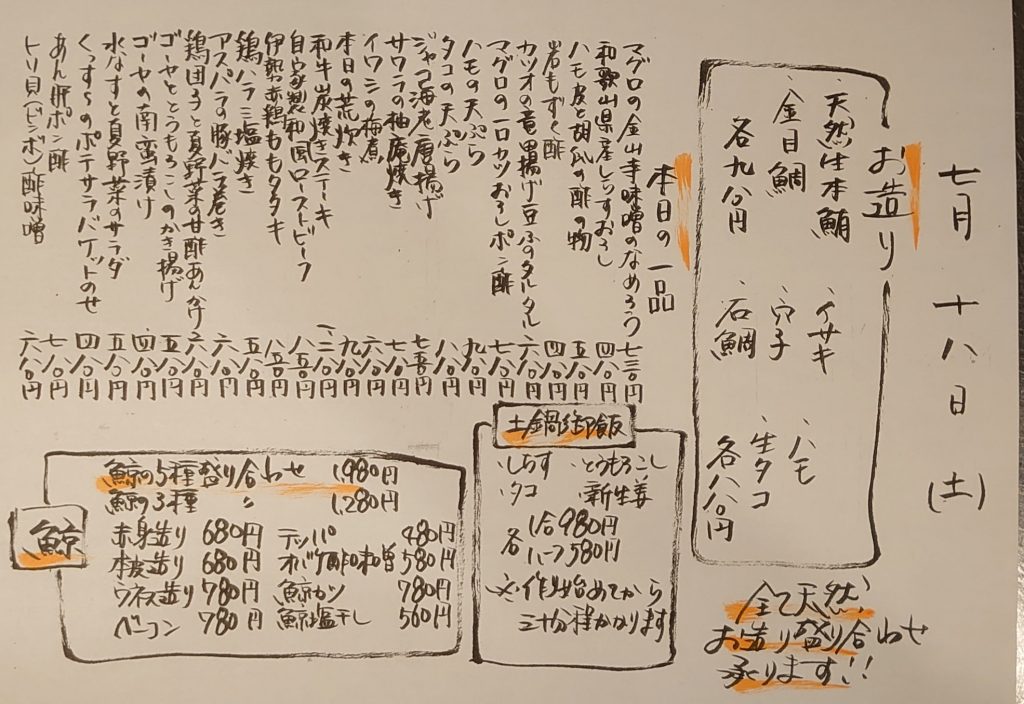 七月 十八日 (土)
お造り
・天然生本鮪 ・イサキ ・ハモ
・金目鯛 ・穴子 ・生タコ
各九八〇円 ・石鯛 各八八〇円
全て天然!
お造り盛り合わせ
承ります!!
本日の一品
マグロの金山寺味噌のなめろう 七三〇円
和歌山県産しらすおろし 四八〇円
ハモ皮と胡瓜の酢の物 五八〇円
岩もずく酢 四八〇円
カツオの竜田揚げ豆ふのタルタル 六八〇円
マグロの一口カツおろしポン酢 七八〇円
ハモの天ぷら 九八〇円
タコの天ぷら 八八〇円
ジャコ海老唐揚げ 七五〇円
サワラの柚庵焼き 七八〇円
イワシの梅煮 六八〇円
本日の荒炊き 九八〇円
和牛炭焼きステーキ 一、二八〇円
自家製和風ローストビーフ 八五〇円
伊勢赤鶏ももタタキ 八五〇円
鶏ハラミ塩焼き 五八〇円
アスパラの豚バラ巻き 六八〇円
鶏団子と夏野菜の甘酢あんかけ 六八〇円
ゴーヤととうもろこしのかき揚げ 五八〇円
ゴーヤの南蛮漬け 四八〇円
水なすと夏野菜のサラダ 五八〇円
くっすらのポテサラバケットのせ 四八〇円
あん肝ポン酢 七八〇円
トリ貝(ビンボ)酢味噌 六八〇円
土鍋御飯
・しらす ・とうもろこし
・タコ ・新生姜
各 1合 980円
ハーフ 580円
※作り始めてから
三十分程かかります
鯨
鯨の5種盛り合わせ 1,980円
鯨の3種 〃 1,280円
赤身造り 680円 テッパ 480円
本皮造り 680円 オバケ酢味噌 580円
ウネス造り 780円 鯨カツ 780円
ベーコン 780円 鯨塩干し 560円